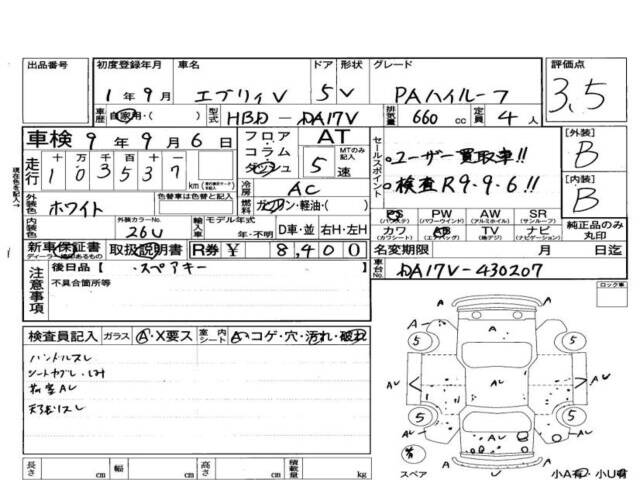 出品番号 初度登録年月 車名 ドア 形状 グレード 評価点
1年9月 エブリィV 5 V PAハイルーフ 3.5
車歴 自家用・( ) 型式 HBD - DA17V 排気量 660 cc 定員 4人
車検 9年9月6日 フロア コラム ダッシュ AT 5 MTのみ記入 速 セールスポイント [外装] B
走行 十万 103537 km ・ユーザー買取車!!
・検査R9.9.6!! [内装] B
外装色 ホワイト 色替車は色替と記入 冷房 AC 燃料 ガソリン・軽油・( )
PS (パワステ) PW (パワーウィンド) AW (アルミホイル) SR (サンルーフ) 純正品のみ丸印
カワ (カワシート) AB (エアバッグ) TV (地デジ) ナビ (ナビゲーション)
内装色 外装カラーNo. 26U 輸入車 モデル年式 年・不明 D車・並 右H・左H
新車保証書 ディーラー 取扱説明書 R券 ¥ 8,400 名変期限 月 日迄
注意事項 後日品 [ ・スペアキー 車台No. DA17V-430207
不具合箇所等 ロック車
検査員記入 ガラス A・X要ス 室内シート A・コゲ・穴・汚れ・破れ
ハンドルスレ
シートヤブレ・しみ
荷室AU
A A
5 5
AU A AU
5 5
AU AU A
スペア U 小A有 小U有
長さ cm 幅 cm 高さ cm 積載量 kg